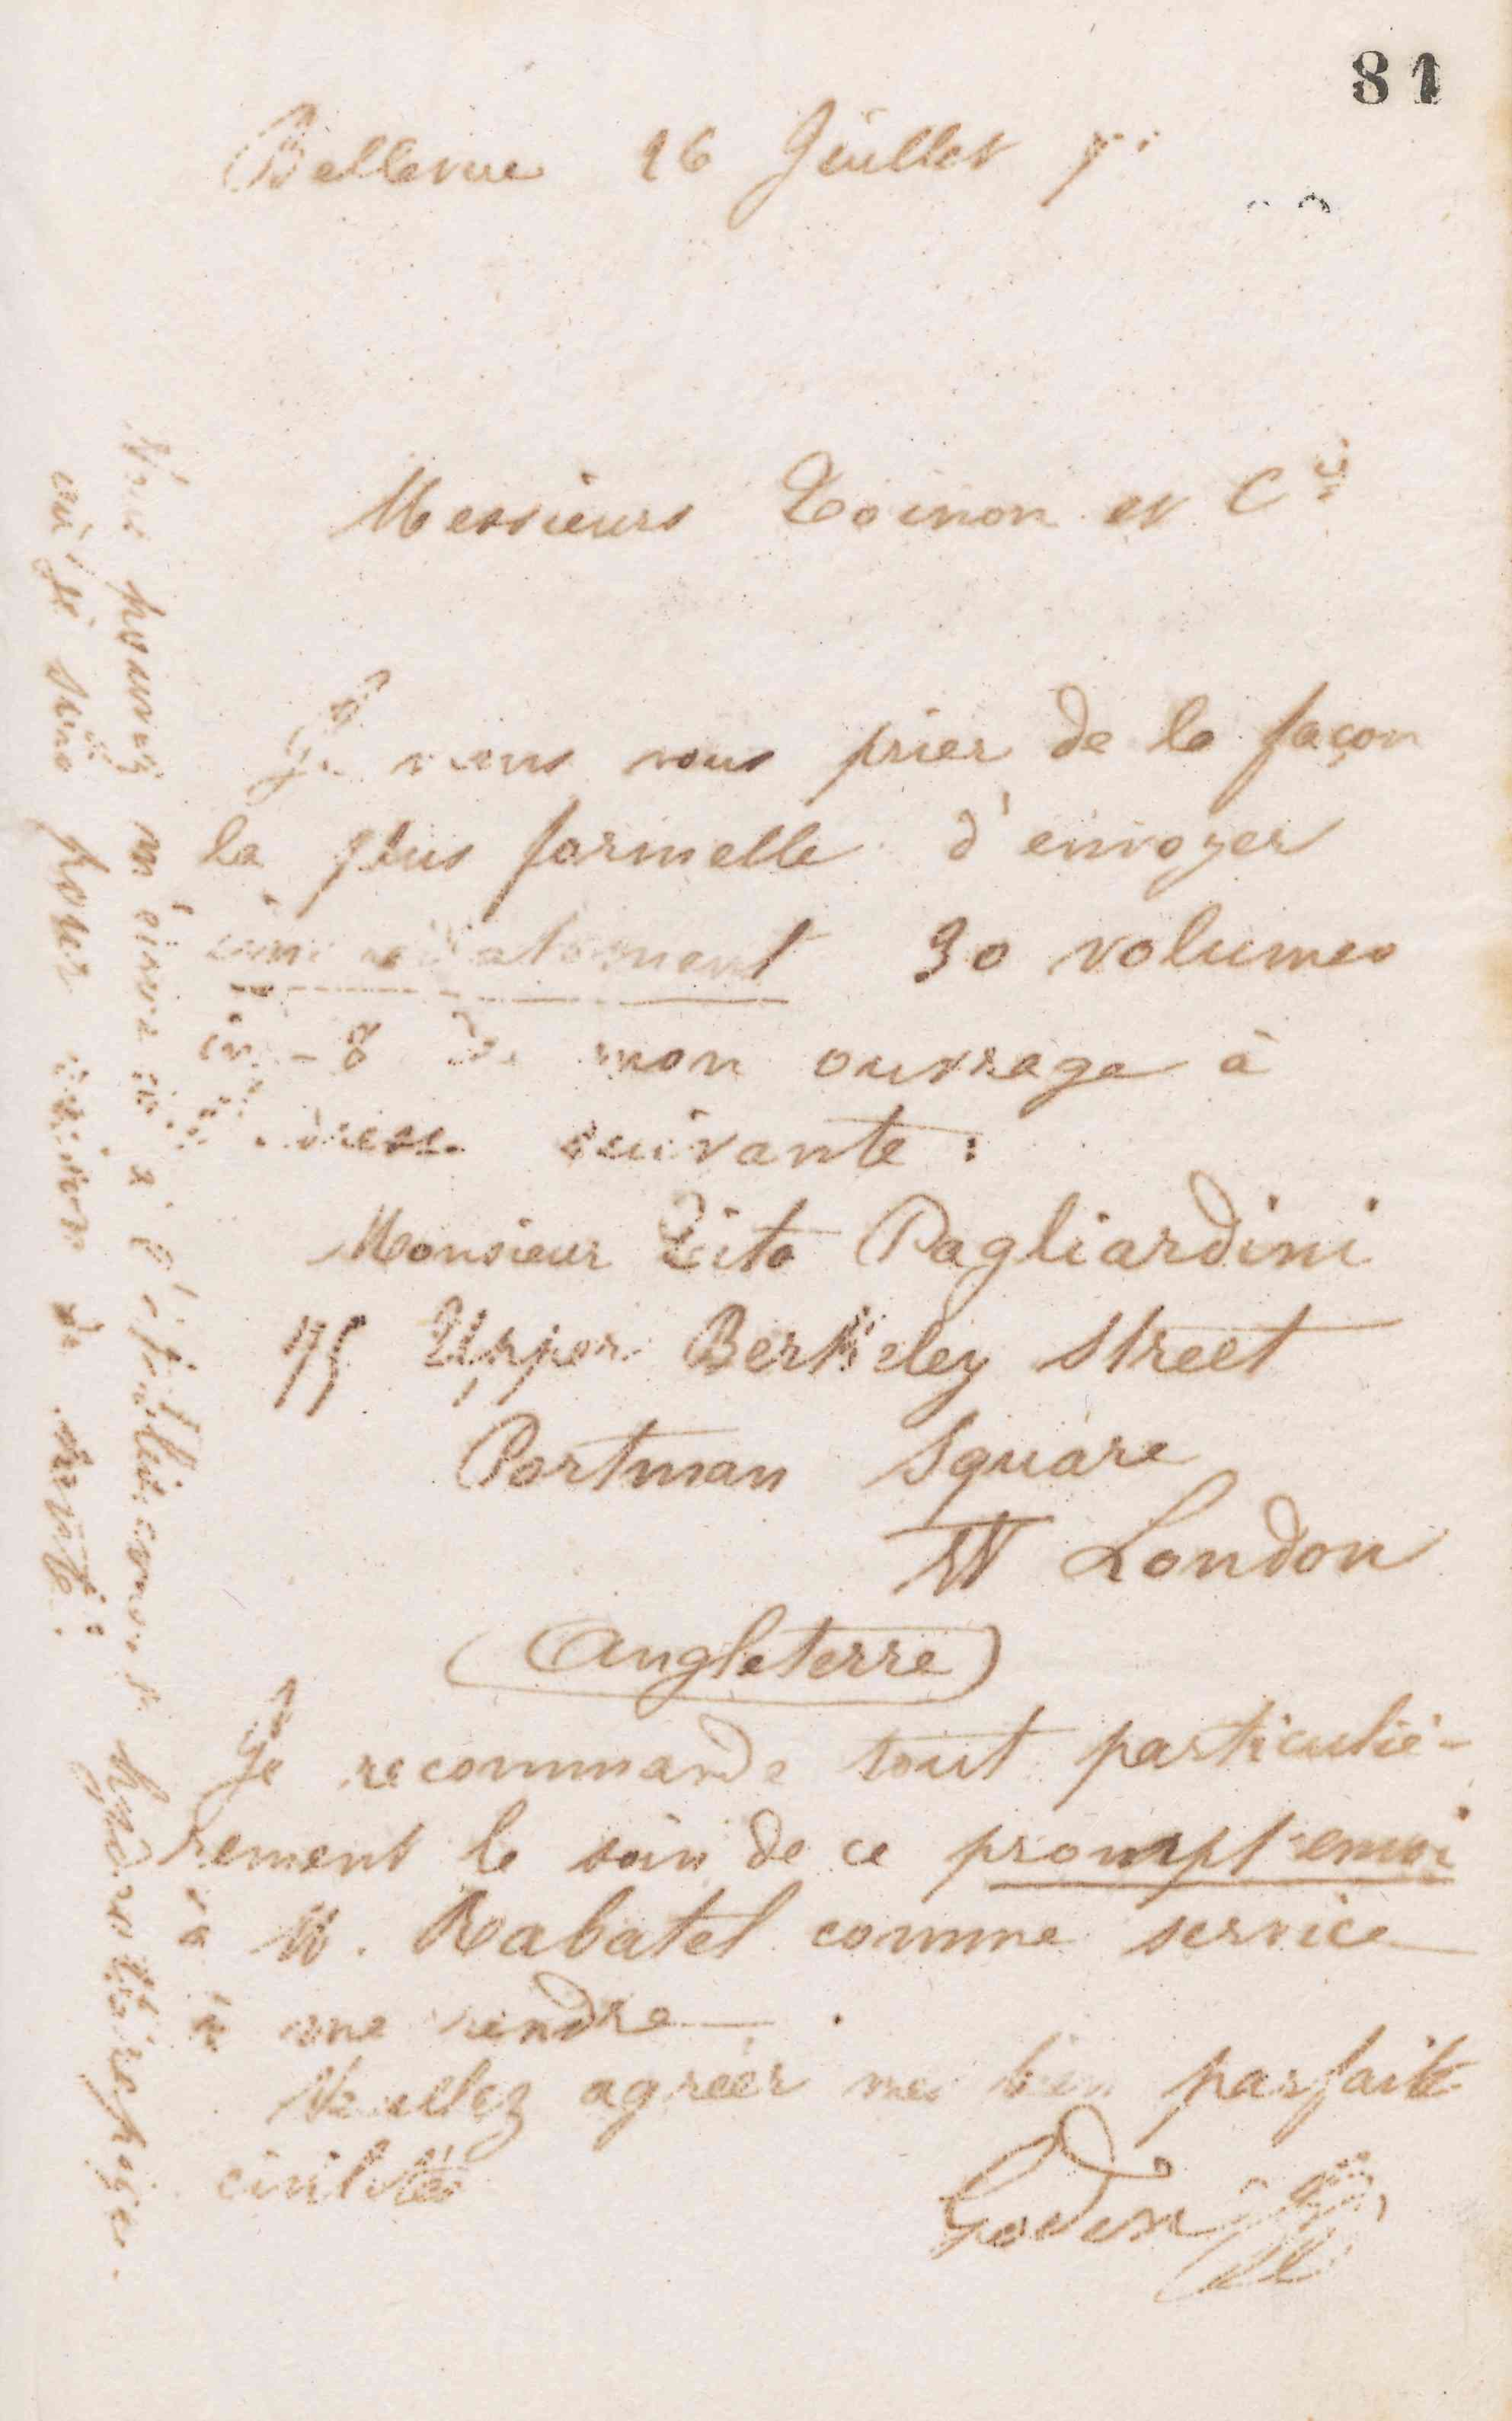 81
Bellevue 16 Juillet 7
Messieurs Toinon et Cie
Je viens vous prier de la façon
la plus formelle d'envoyer
immédiatement 30 volumes
in-8 de mon ouvrage à
suivante :
Monsieur Tito Pagliardini
75 Upper Berkeley Street
Portman Square
W London
(Angleterre)
Je recommande tout particuliè-
rement le soin de ce prompt envoi
à M. Rabatel comme service
à me rendre.
Veuillez agréer mes bien parfaite
civilités
Godin
Vous pouvez m'écrire ici à l'établissement hydrothérapique
où je suis pour raison de santé.